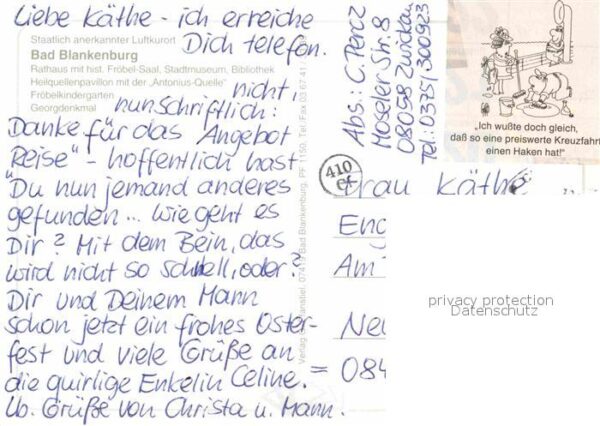 Liebe Käthe - ich erreiche
Dich telefon.
nicht,
nunschriftlich:
Danke für das Angebot
"Reise" - hoffentlich hast
Du nun jemand anderes
gefunden... wie geht es
Dir? Mit dem Bein, das
wird nicht so schnell, oder?
Dir und Deinem Mann
schon jetzt ein frohes Oster-
fest und viele Grüße an
die quirlige Enkelin Celine. =
Lb. Grüße von Christa u. Mann.
Staatlich anerkannter Luftkurort
Bad Blankenburg
Rathaus mit hist. Fröbel-Saal, Stadtmuseum, Bibliothek
Heilquellenpavillon mit der „Antonius-Quelle"
Fröbelkindergarten
Georgdenkmal
07419 Bad Blankenburg, PF 1150, Tel./Fax 03 67 41
Abs.: C. Percz
Moseler Str. 8
08058 Zwickau
Tel.: 0375/300923
„Ich wußte doch gleich,
daß so eine preiswerte Kreuzfahrt
einen Haken hat!"
410
Frau Käthe
End
Am
Neu
084
privacy protection
Datenschutz